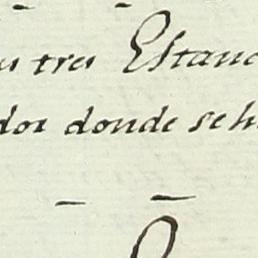 tres Estanc
dos donde se h